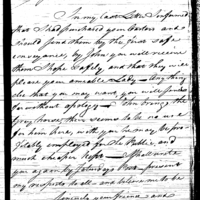 In my last Letter I informed
that I had purchased your Castors and
should send them by the first safe
conveyance, by John you will receive
them I hope safely, and that they will
please your amiable Lady - Any thing
else that you may want you will for
without apology - John brings the
grey horse, there seems to be no use
for him here, with you he may be pro-
fitably employed for the Public, and
much cheaper kept - I shall write
you again by Saturday's Post - present
my respects to all - and believe me to be
Sincerely your friend and